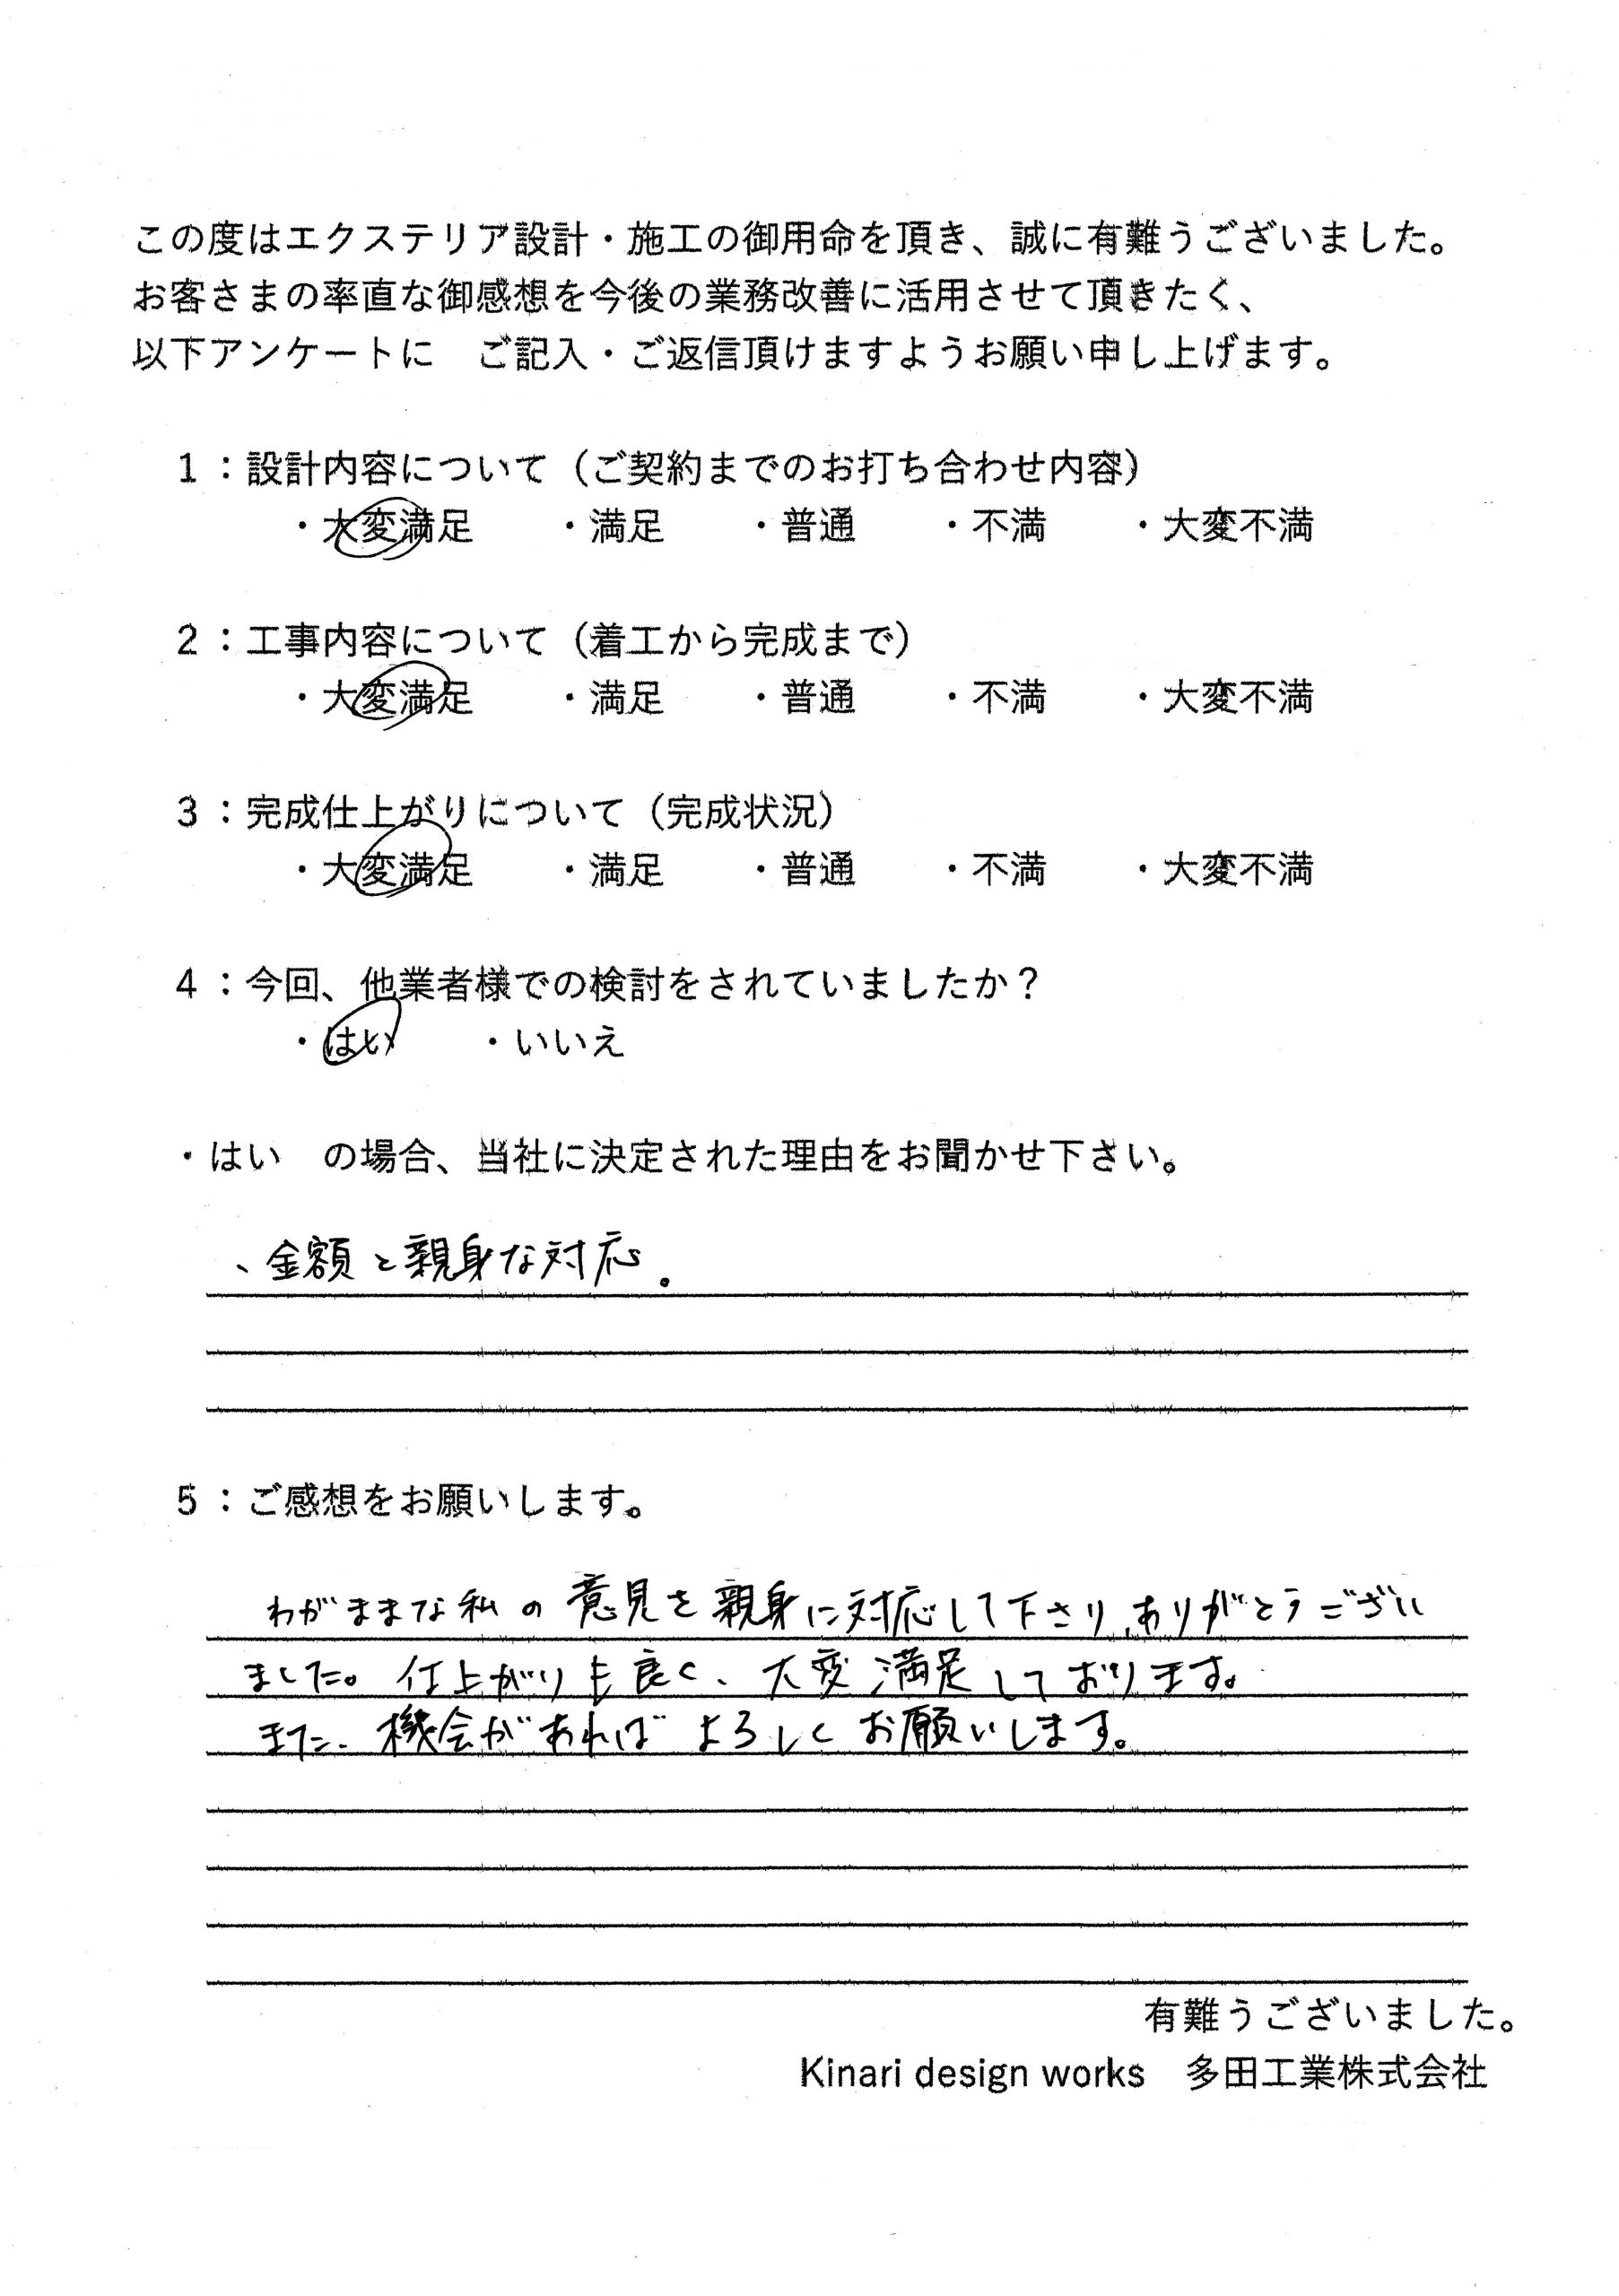 この度はエクステリア設計・施工の御用命を頂き、誠に有難うございました。
お客さまの率直な御感想を今後の業務改善に活用させて頂きたく、
以下アンケートに　ご記入・ご返信頂けますようお願い申し上げます。
1：設計内容について（ご契約までのお打ち合わせ内容）
・大変満足　・満足　・普通　・不満　・大変不満
2：工事内容について（着工から完成まで）
・大変満足　・満足　・普通　・不満　・大変不満
3：完成仕上がりについて（完成状況）
・大変満足　・満足　・普通　・不満　・大変不満
4：今回、他業者様での検討をされていましたか？
・はい　・いいえ
・はい　の場合、当社に決定された理由をお聞かせ下さい。
、金額と親身な対応。
5：ご感想をお願いします。
わがままな私の意見を親身に対応して下さり、ありがとうござい
ました。仕上がりも良く、大変満足しております。
また、機会があればよろしくお願いします。
有難うございました。
Kinari design works　多田工業株式会社